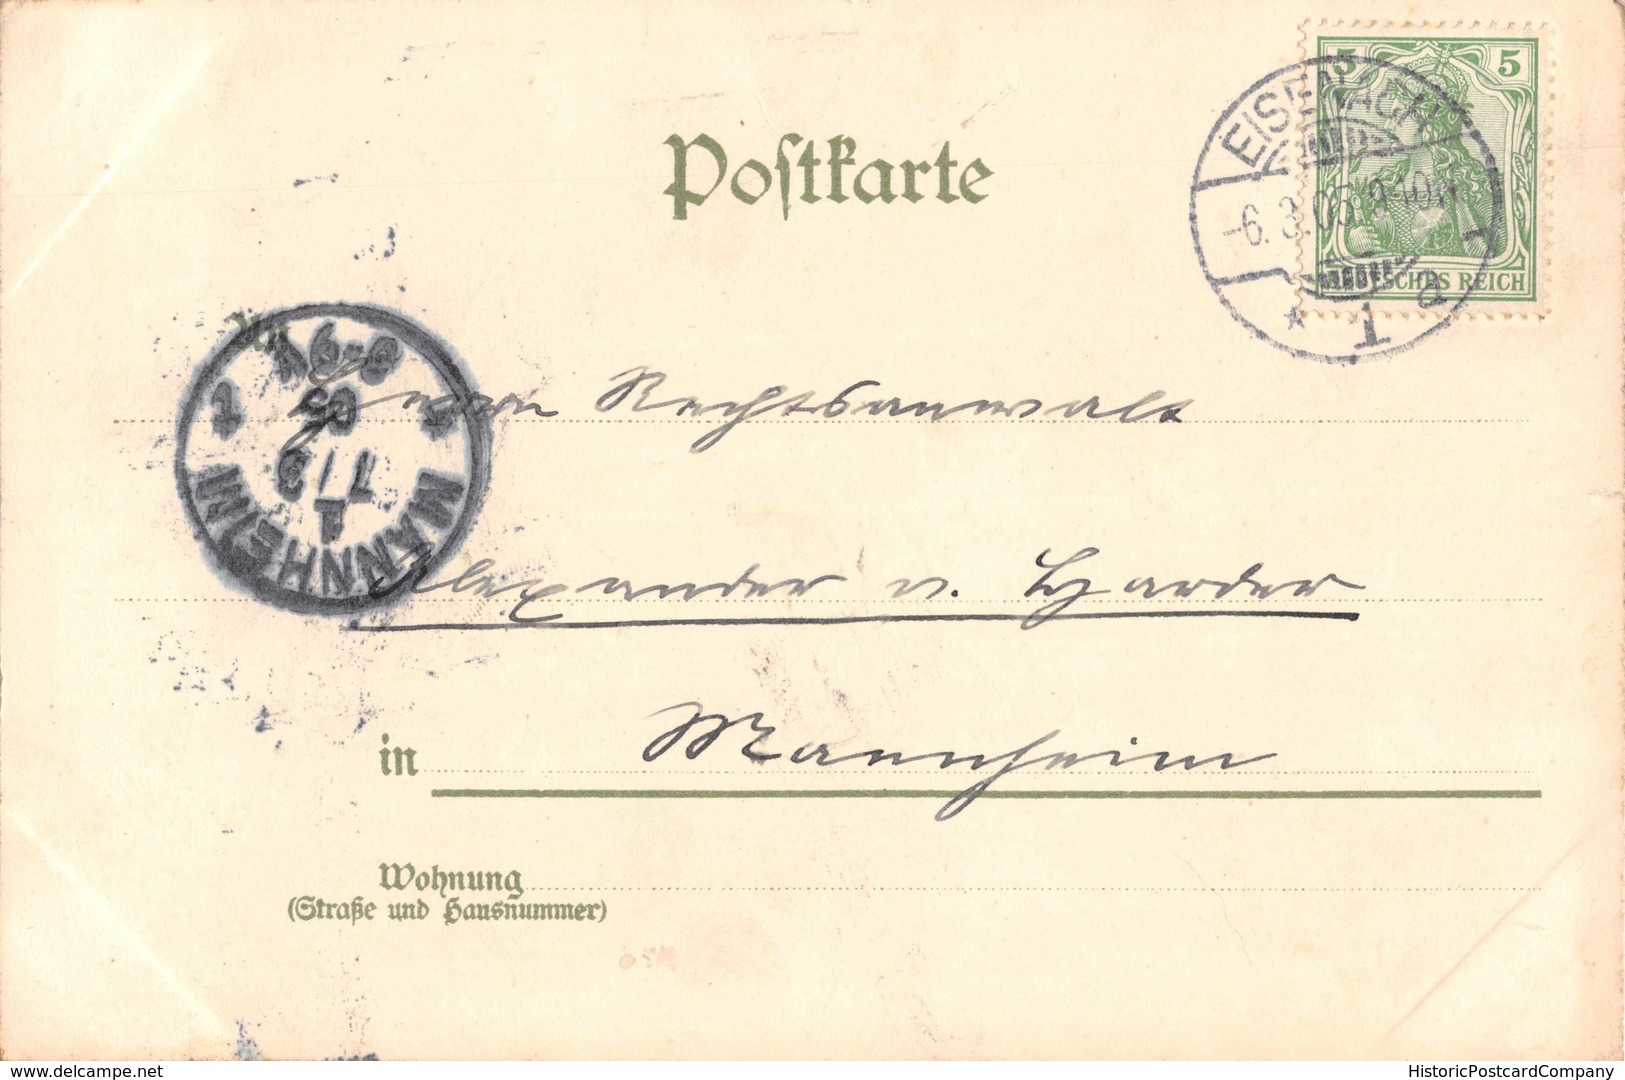 Postkarte
5 5
DEUTSCHES REICH
EISENACH
-6.3.05. 9-10
* 1 a
An
MANNHEIM
1
7/3
05
6-9V
Herrn Rechtsanwalt
Alexander v. Harder
in Mannheim
Wohnung
(Straße und Hausnummer)
delcampe.net
HistoricPostcardCompany